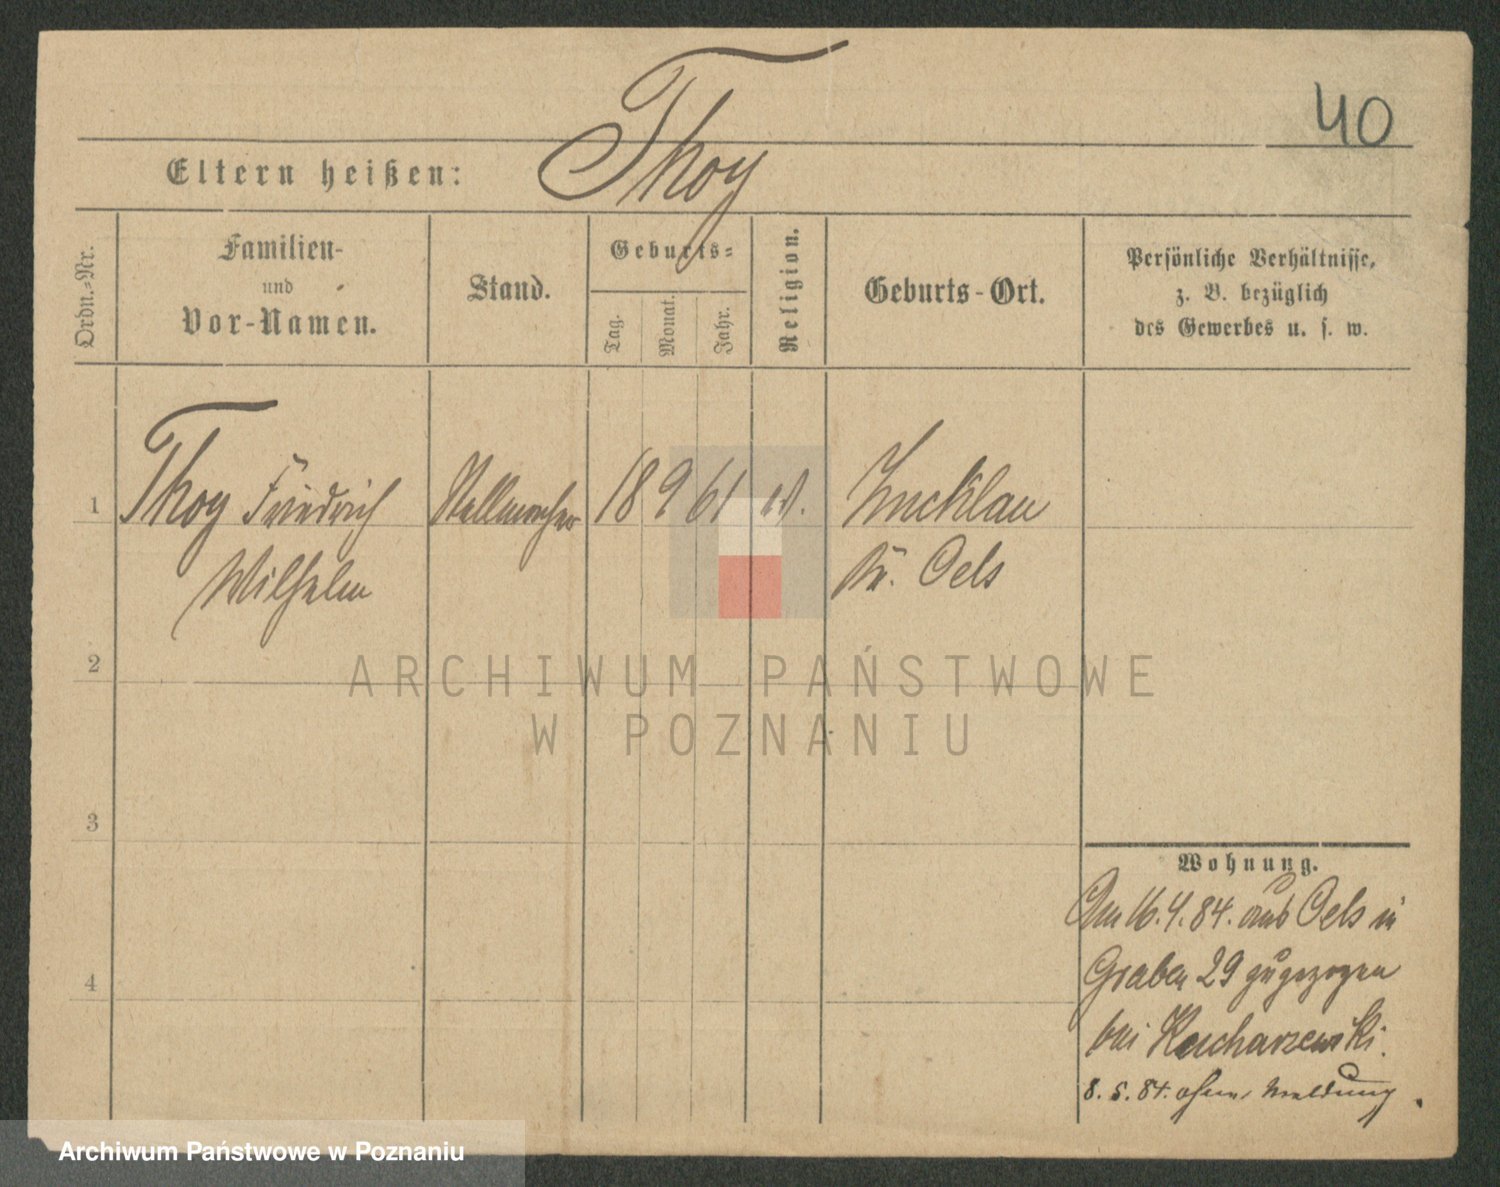 40
Eltern heißen: Thoy
Ordn.-Nr.
Familien-
und
Vor-Namen.
Stand.
Geburts-
Tag.
Monat.
Jahr.
Religion.
Geburts-Ort.
Persönliche Verhältnisse,
z. B. bezüglich
des Gewerbes u. s. w.
1 Thoy Friedrich Stellmacher 18 9 61 Zucklau
Wilhelm Kr. Oels
2
ARCHIWUM PAŃSTWOWE
W POZNANIU
3
Wohnung.
Am 16.4.84. aus Oels in
4 Graben 29 zugezogen
bei Kucharzewski.
8.5.84. ohne Meldung.
Archiwum Państwowe w Poznaniu